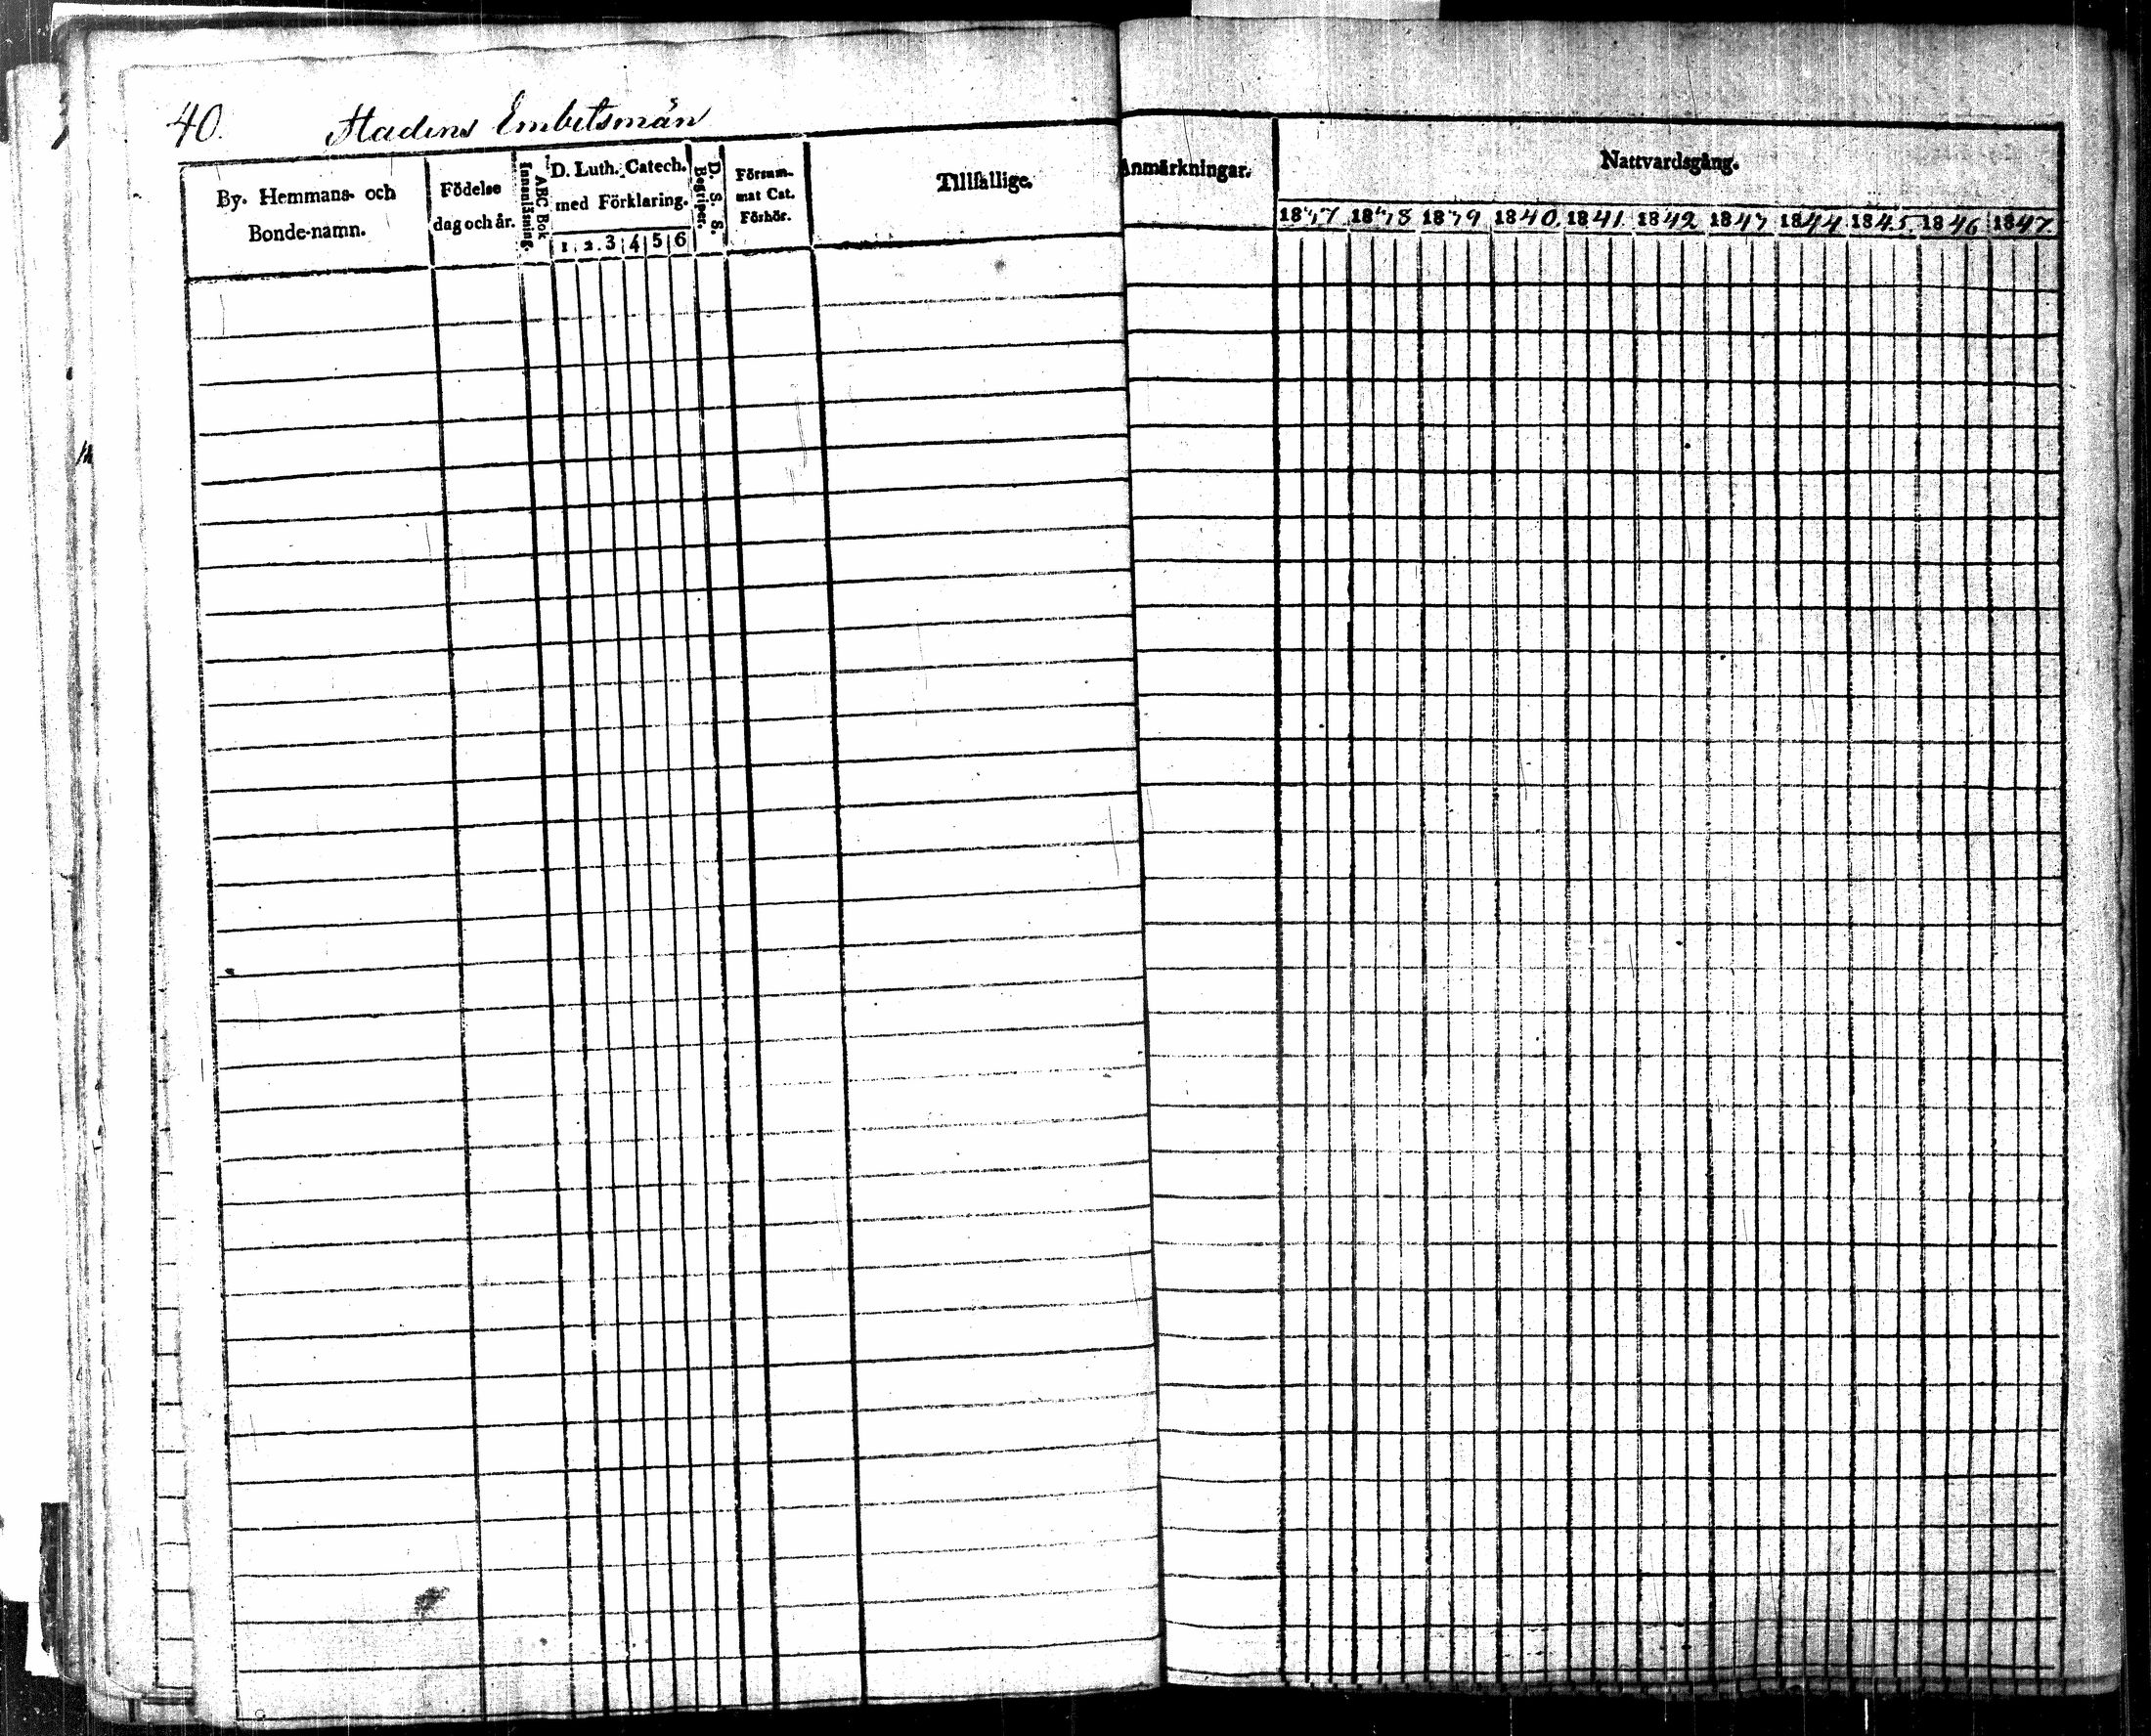 40. Stadens Embetsmän
By. Hemmans- och Bonde-namn.
Födelse dag och år.
Innanläsning.
ABC Bok
D. Luth. Catech. med Förklaring.
1 2 3 4 5 6
D. S. S. Begriper.
Försummat Cat. Förhör.
Tillfällige Anmärkningar.
Nattvardsgång.
1837 1838 1839 1840 1841 1842 1843 1844 1845 1846 1847